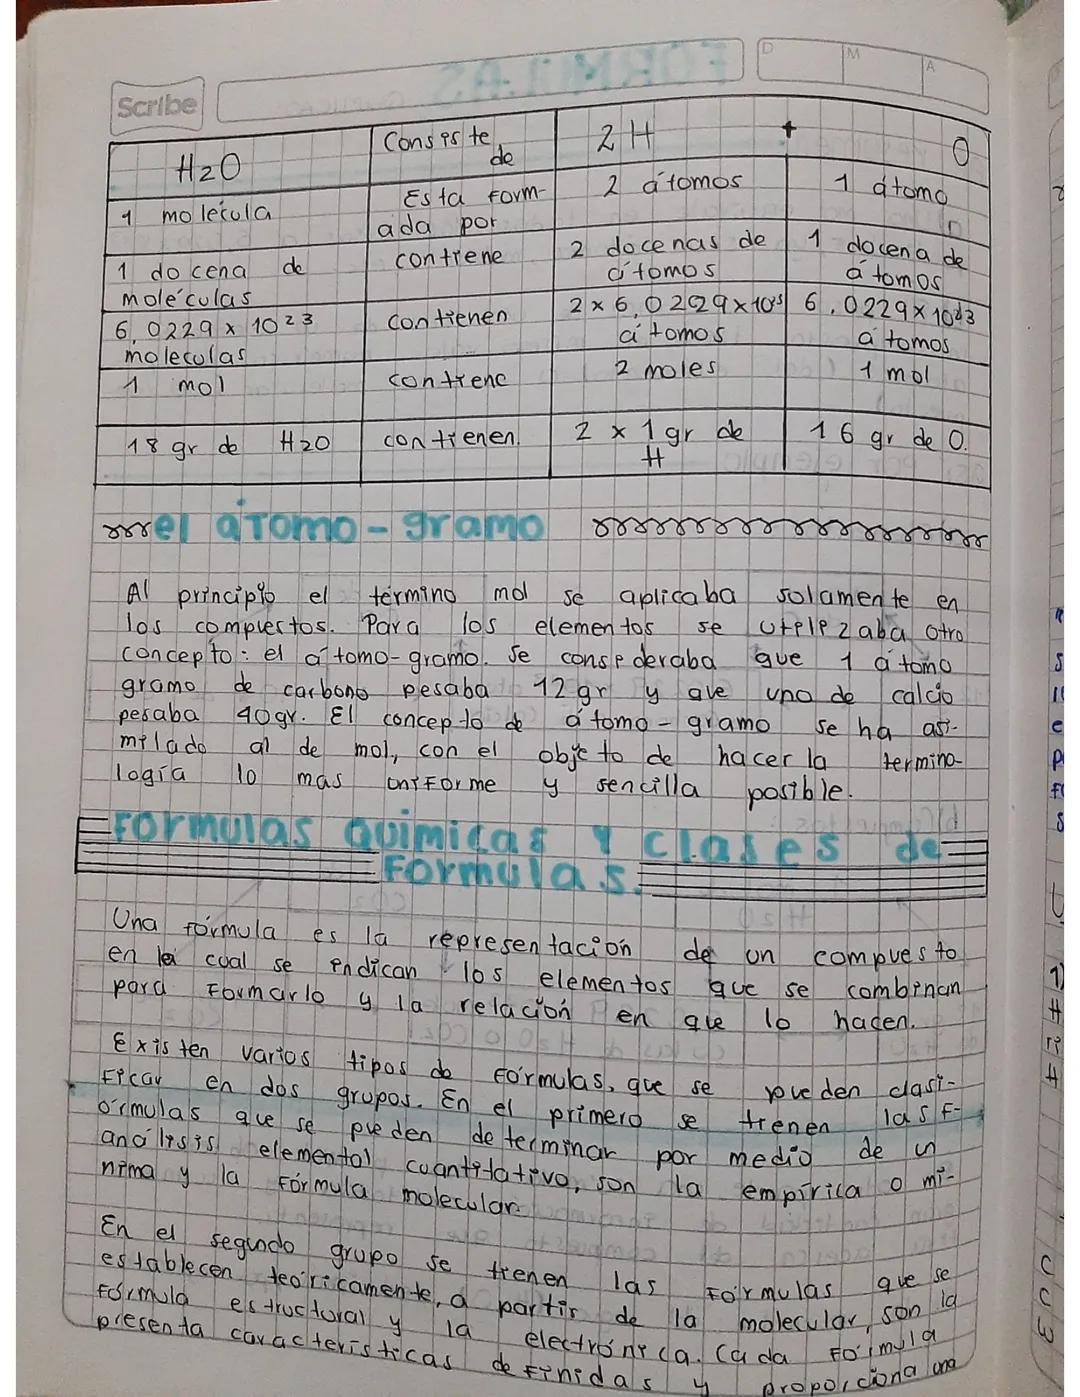 Scribe
D M A
H2O Consiste de 2 H + O
1 molécula Esta formada por 2 átomos 1 átomo
1 docena de moléculas contiene 2 docenas de átomos 1 docena de átomos
6,0229 x 10²³ moleculas contienen 2 x 6,0229 x 10²³ átomos 6,0229 x 10²³ átomos
1 mol contiene 2 moles 1 mol
18 gr de H2O contienen. 2 x 1 gr de H 16 gr de O.
el átomo-gramo
Al principio el término mol se aplicaba solamente en
los compuestos. Para los elementos se utilizaba otro
concepto: el átomo-gramo. Se consideraba que 1 átomo
gramo de carbono pesaba 12 gr y que uno de calcio
pesaba 40gr. El concepto de átomo-gramo se ha asi-
milado al de mol, con el objeto de hacer la termino-
logía lo mas uniforme y sencilla posible.
Formulas quimicas y clases de
Formulas.
Una fórmula es la representación de un compuesto
en la cual se indican los elementos que se combinan
para formarlo y la relación en que lo hacen.
Existen varios tipos de fórmulas, que se pueden clasi-
ficar en dos grupos. En el primero se tienen las f-
órmulas que se pueden determinar por medio de un
análisis elemental cuantitativo, son la empírica o mí-
nima y la fórmula molecular.
En el segundo grupo se tienen las fórmulas que se
establecen teóricamente, a partir de la molecular, son la
fórmula estructural y la electrónica. Cada fórmula
presenta características definidas y proporciona una